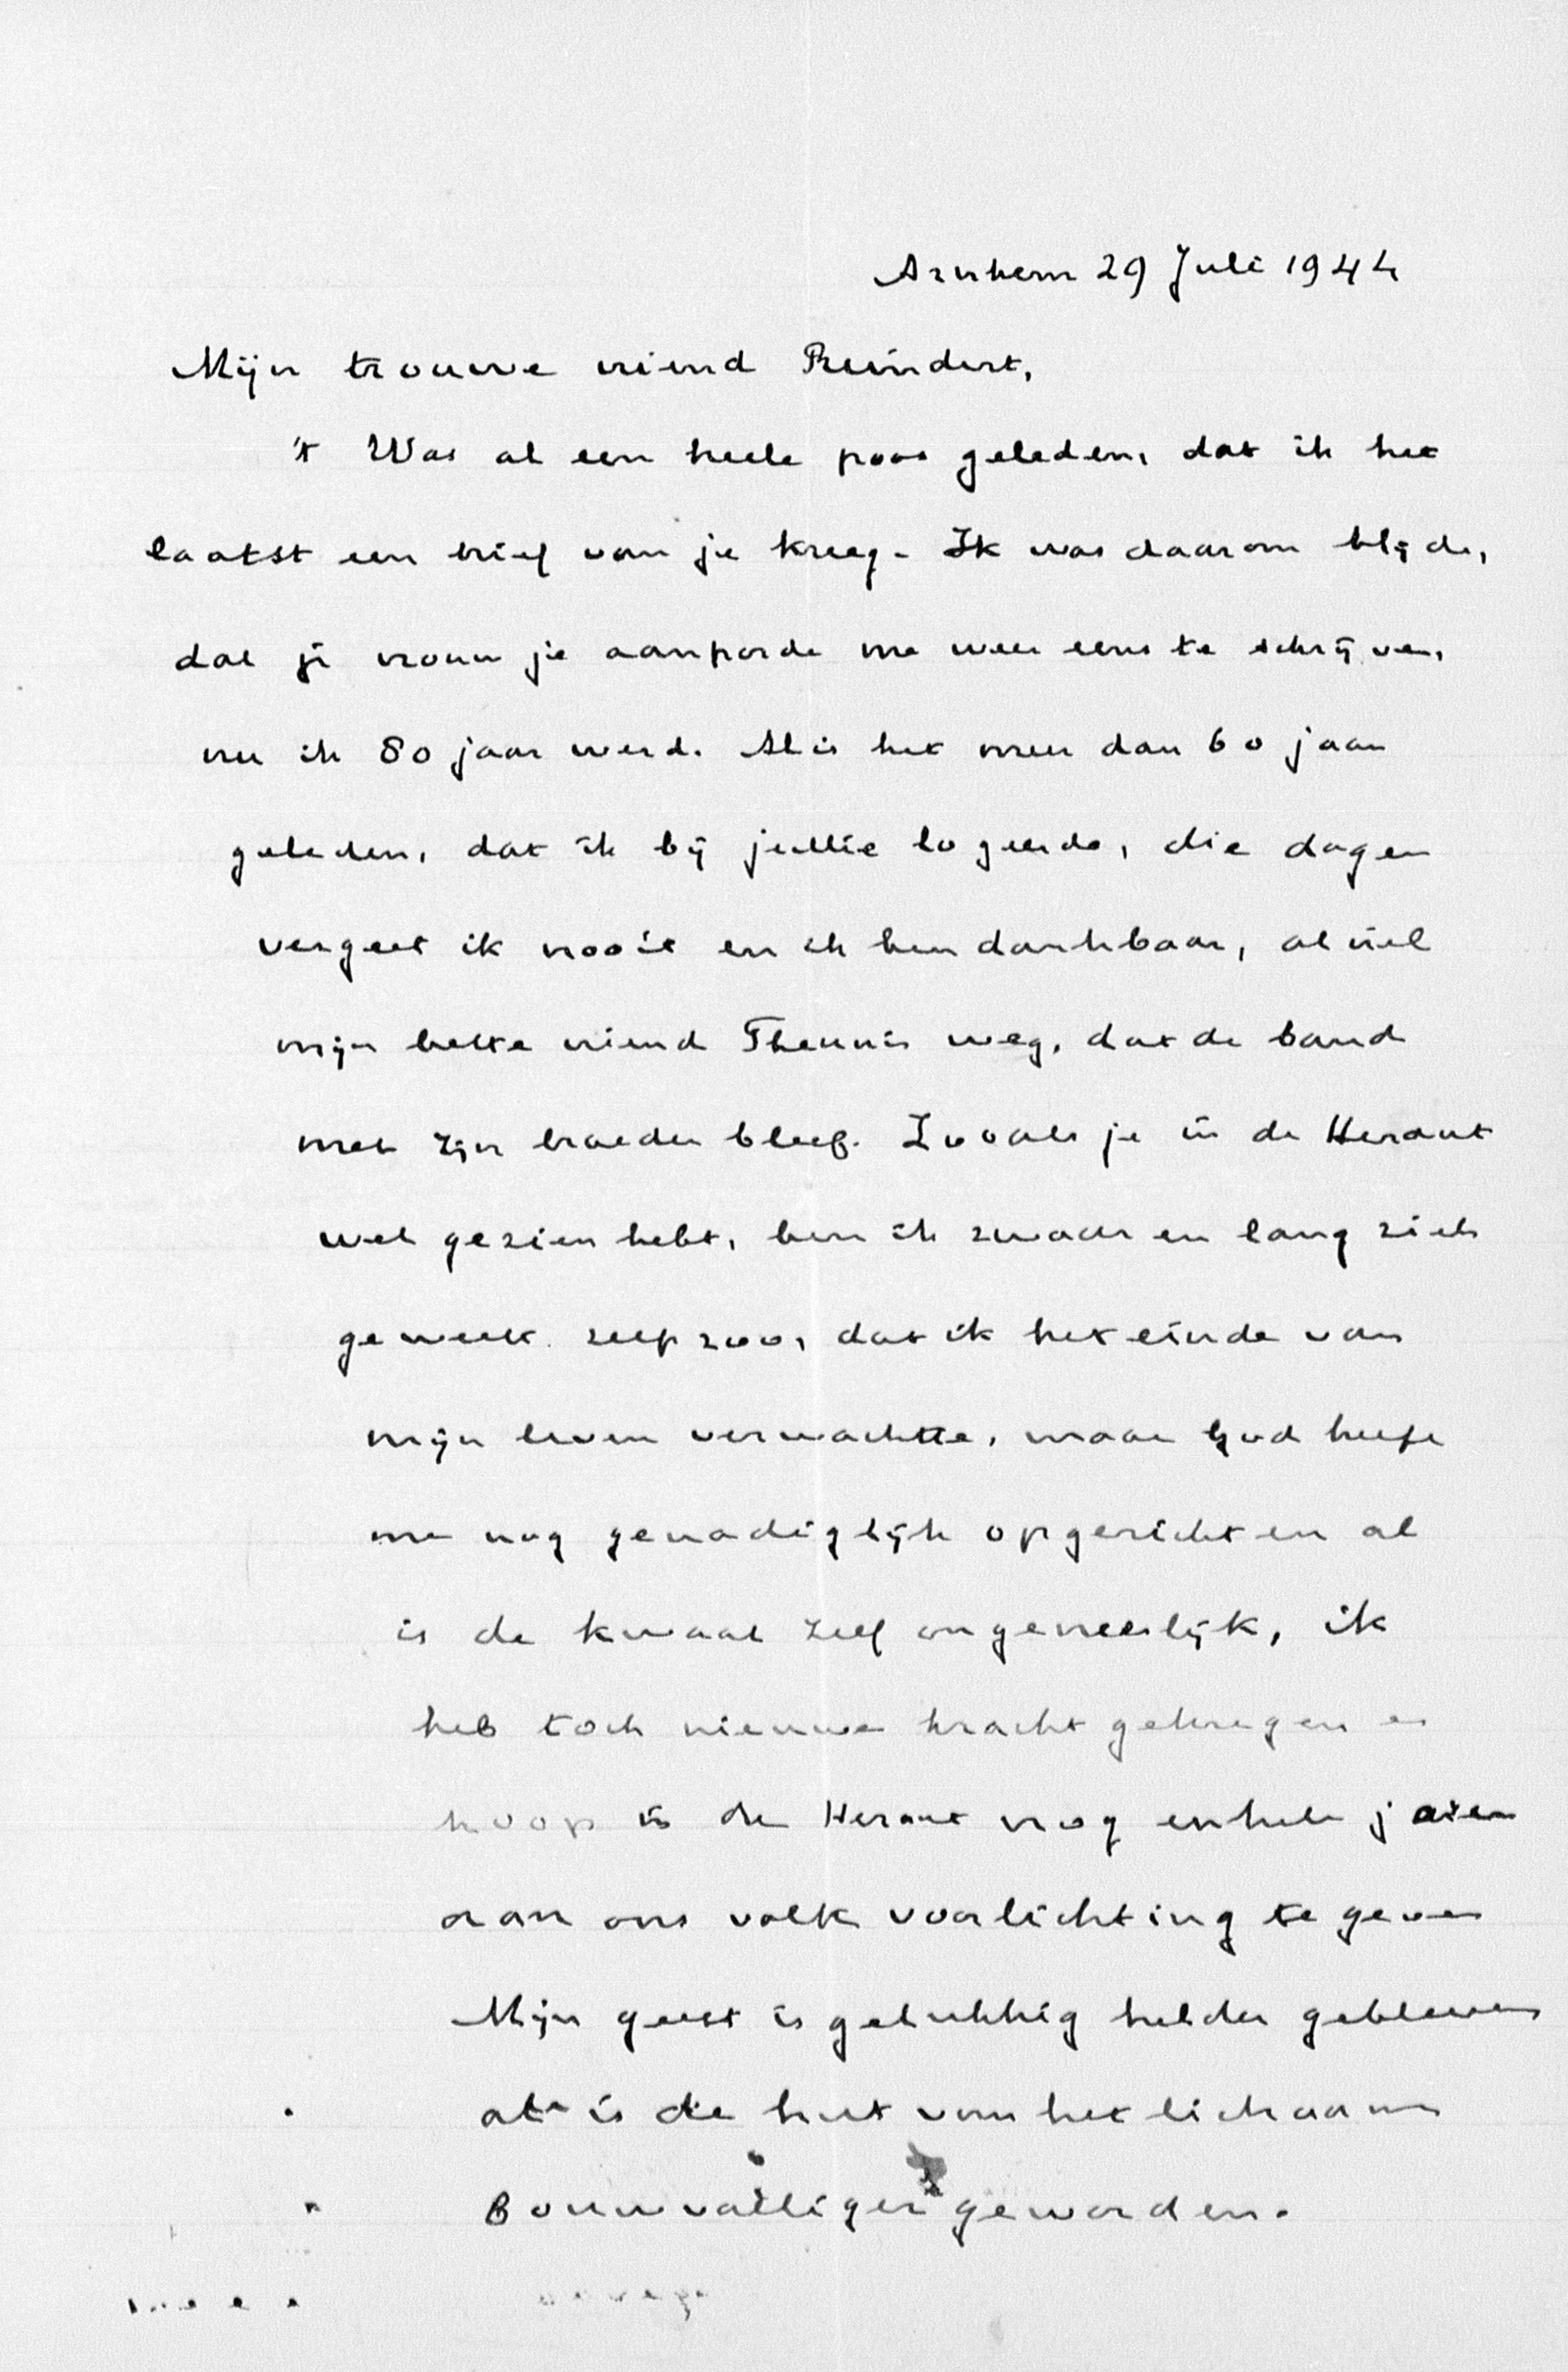 Arnhem 29 Juli 1944
Mijn trouwe vriend Reindert,
't Was al een heele poos geleden, dat ik het
laatst een brief van je kreeg. Ik was daarom blijde,
dat je vrouw je aanporde me weer eens te schrijven,
nu ik 80 jaar werd. Al is het meer dan 60 jaar
geleden, dat ik bij jullie logeerde, die dagen
vergeet ik nooit en ik ben dankbaar, al viel
mijn beste vriend Theunis weg, dat de band
met zijn broeder bleef. Zooals je in de Heraut
wel gezien hebt, ben ik zwaar en lang ziek
geweest zelfs zoo, dat ik het einde van
mijn leven verwachtte, maar God heeft
me nog genadiglijk opgericht en al
is de kwaal zelf ongeneeslijk, ik
heb toch nieuwe kracht gekregen en
hoop in de Heraut nog enkele jaren
aan ons volk voorlichting te geven
Mijn geest is gelukkig helder gebleven
al is de hut van het lichaam
Bouwvalliger geworden.